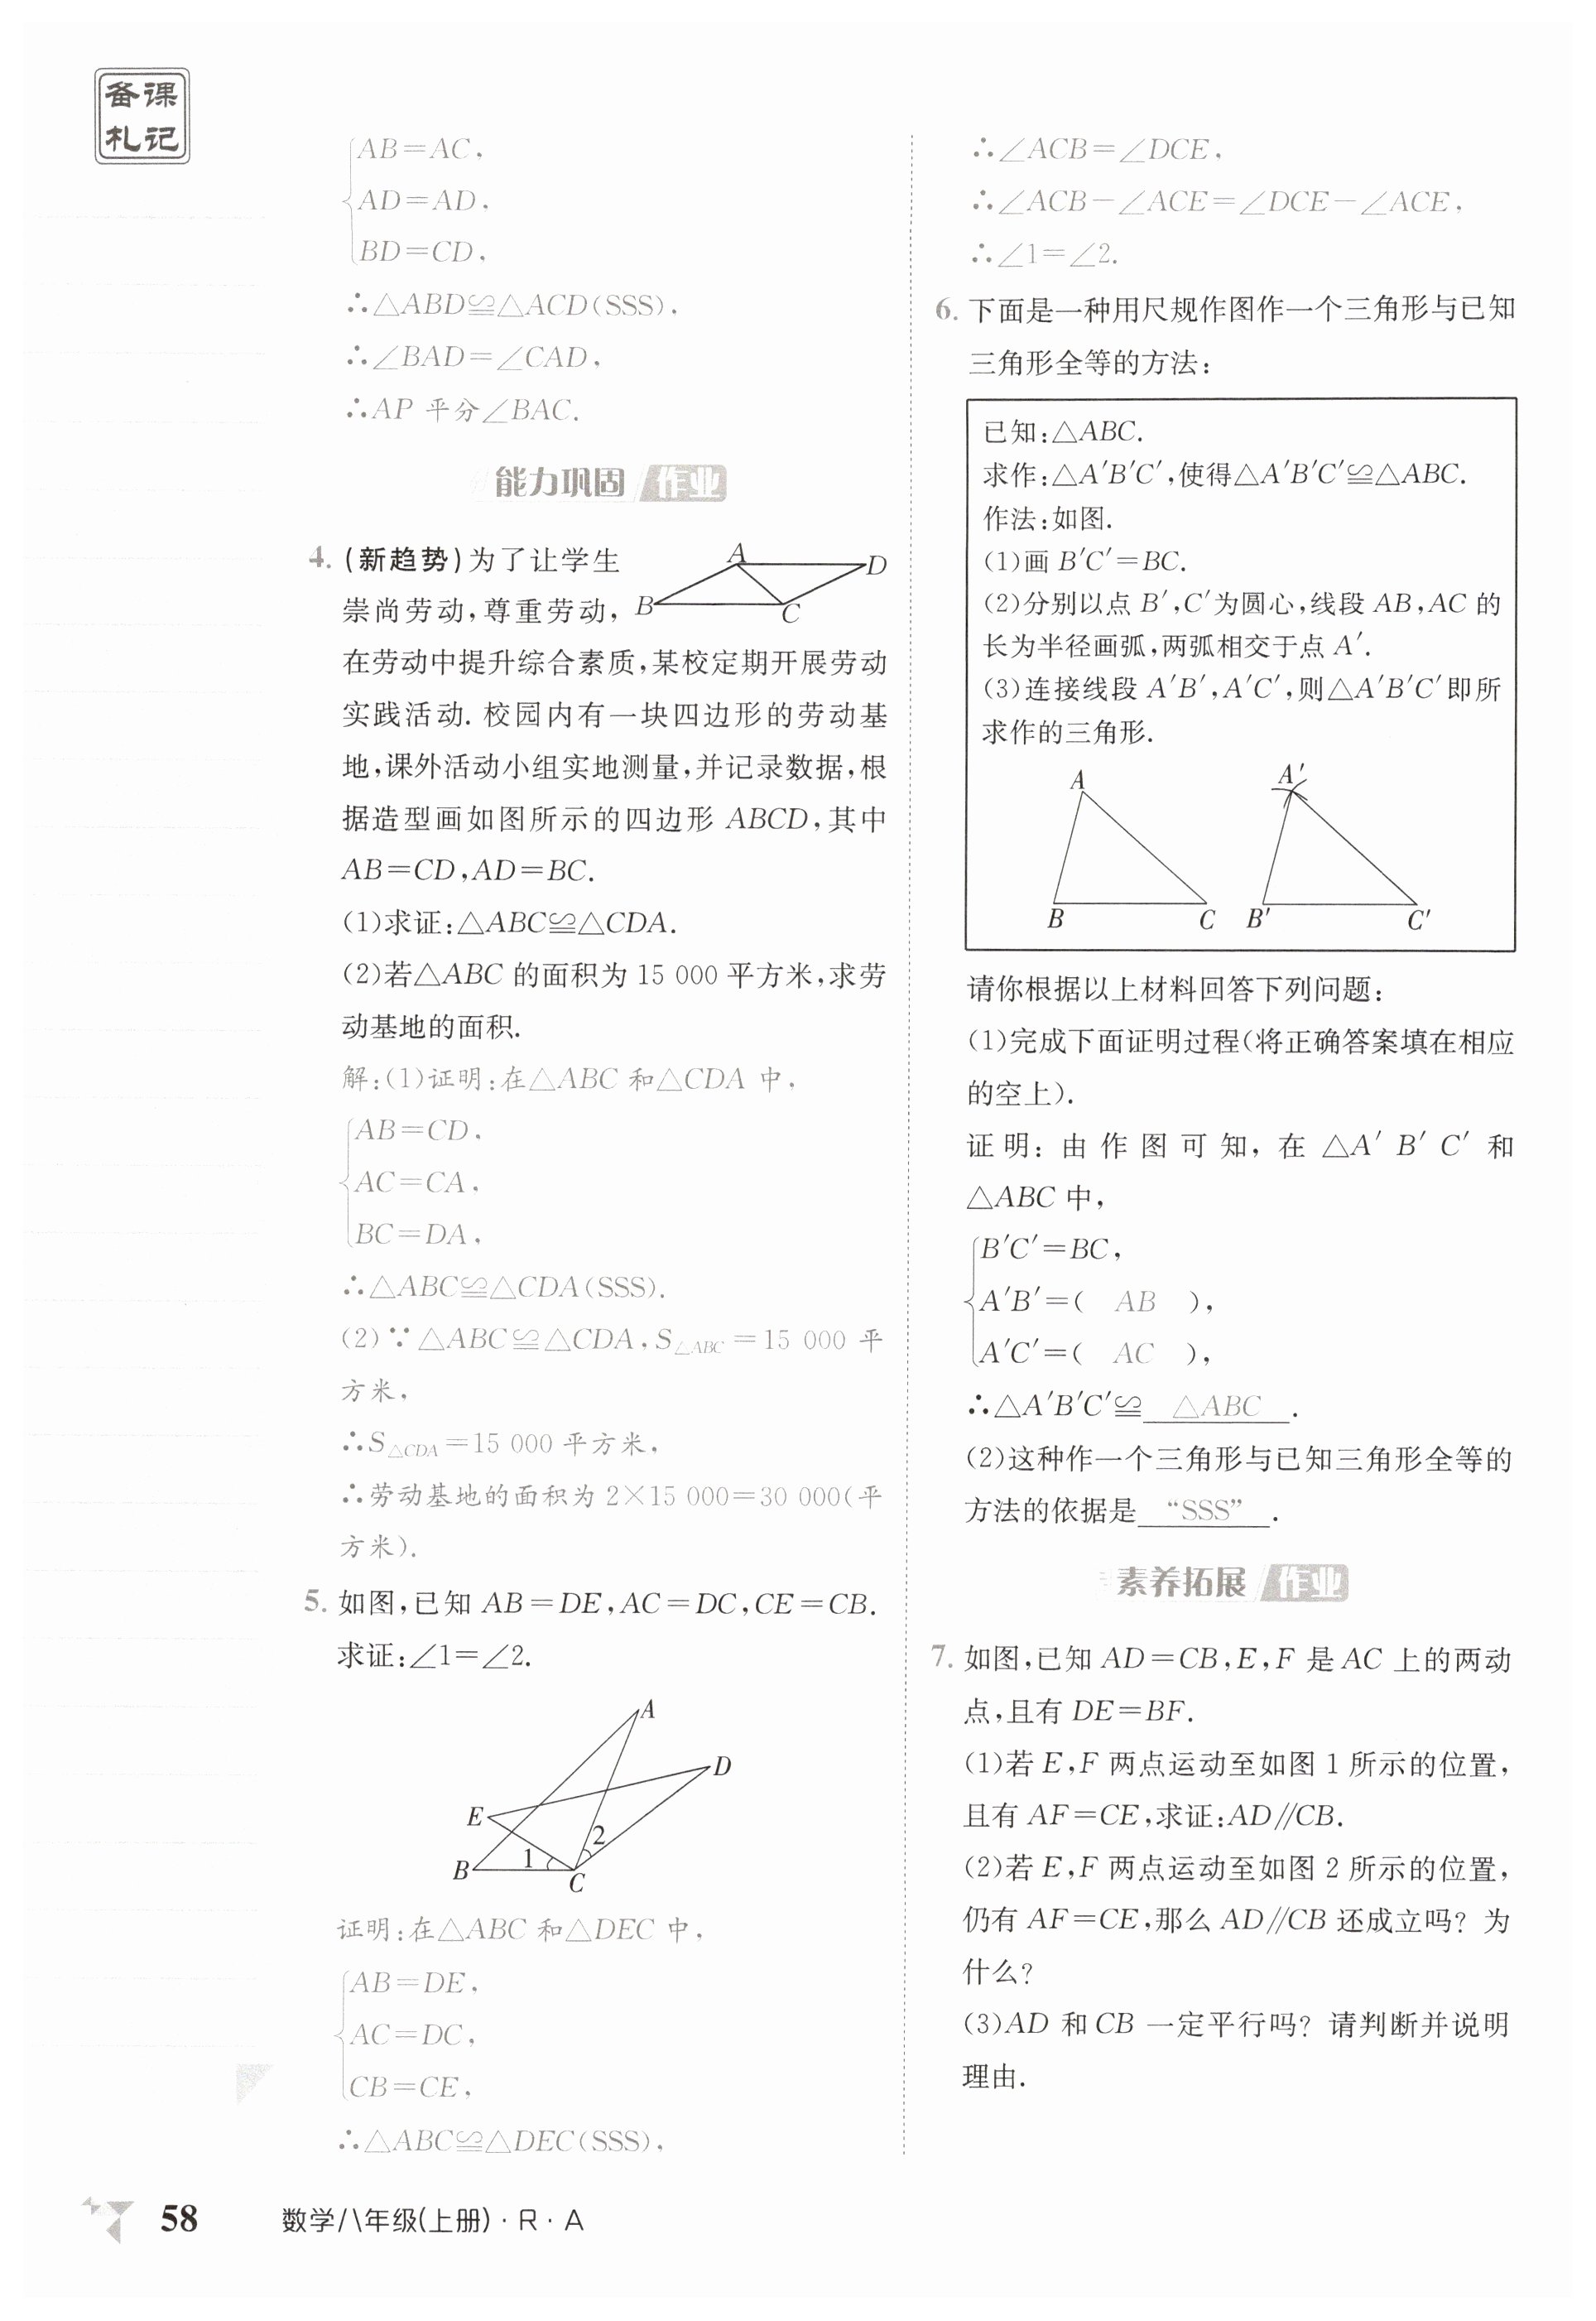 备课
札记
AB=AC,
AD=AD,
BD=CD,
∴△ABD≌△ACD(SSS).
∴∠BAD=∠CAD,
∴AP 平分∠BAC.
能力巩固 作业
4. (新趋势)为了让学生
崇尚劳动,尊重劳动,
在劳动中提升综合素质,某校定期开展劳动
实践活动. 校园内有一块四边形的劳动基
地,课外活动小组实地测量,并记录数据,根
据造型画如图所示的四边形 ABCD,其中
AB=CD,AD=BC.
(1)求证:△ABC≌△CDA.
(2)若△ABC 的面积为 15 000 平方米,求劳
动基地的面积.
A
D
B
C
解:(1)证明:在△ABC 和△CDA 中,
AB=CD,
AC=CA,
BC=DA,
∴△ABC≌△CDA(SSS).
(2)∵△ABC≌△CDA,S△ABC=15 000 平
方米,
∴S△CDA=15 000 平方米,
∴劳动基地的面积为 2×15 000=30 000(平
方米).
5. 如图,已知 AB=DE,AC=DC,CE=CB.
求证:∠1=∠2.
A
D
E
2
B
1
C
证明:在△ABC 和△DEC 中,
AB=DE,
AC=DC,
CB=CE,
∴△ABC≌△DEC(SSS),
∴∠ACB=∠DCE,
∴∠ACB-∠ACE=∠DCE-∠ACE,
∴∠1=∠2.
6. 下面是一种用尺规作图作一个三角形与已知
三角形全等的方法:
已知:△ABC.
求作:△A′B′C′,使得△A′B′C′≌△ABC.
作法:如图.
(1)画 B′C′=BC.
(2)分别以点 B′,C′为圆心,线段 AB,AC 的
长为半径画弧,两弧相交于点 A′.
(3)连接线段 A′B′,A′C′,则△A′B′C′即所
求作的三角形.
A
A′
B
C
B′
C′
请你根据以上材料回答下列问题:
(1)完成下面证明过程(将正确答案填在相应
的空上).
证明:由作图可知,在△A′B′C′和
△ABC 中,
B′C′=BC,
A′B′=( AB ),
A′C′=( AC ),
∴△A′B′C′≌ △ABC .
(2)这种作一个三角形与已知三角形全等的
方法的依据是 “SSS” .
素养拓展 作业
7. 如图,已知 AD=CB,E,F 是 AC 上的两动
点,且有 DE=BF.
(1)若 E,F 两点运动至如图 1 所示的位置,
且有 AF=CE,求证:AD∥CB.
(2)若 E,F 两点运动至如图 2 所示的位置,
仍有 AF=CE,那么 AD∥CB 还成立吗? 为
什么?
(3)AD 和 CB 一定平行吗? 请判断并说明
理由.
58
数学/八年级(上册)·R·A